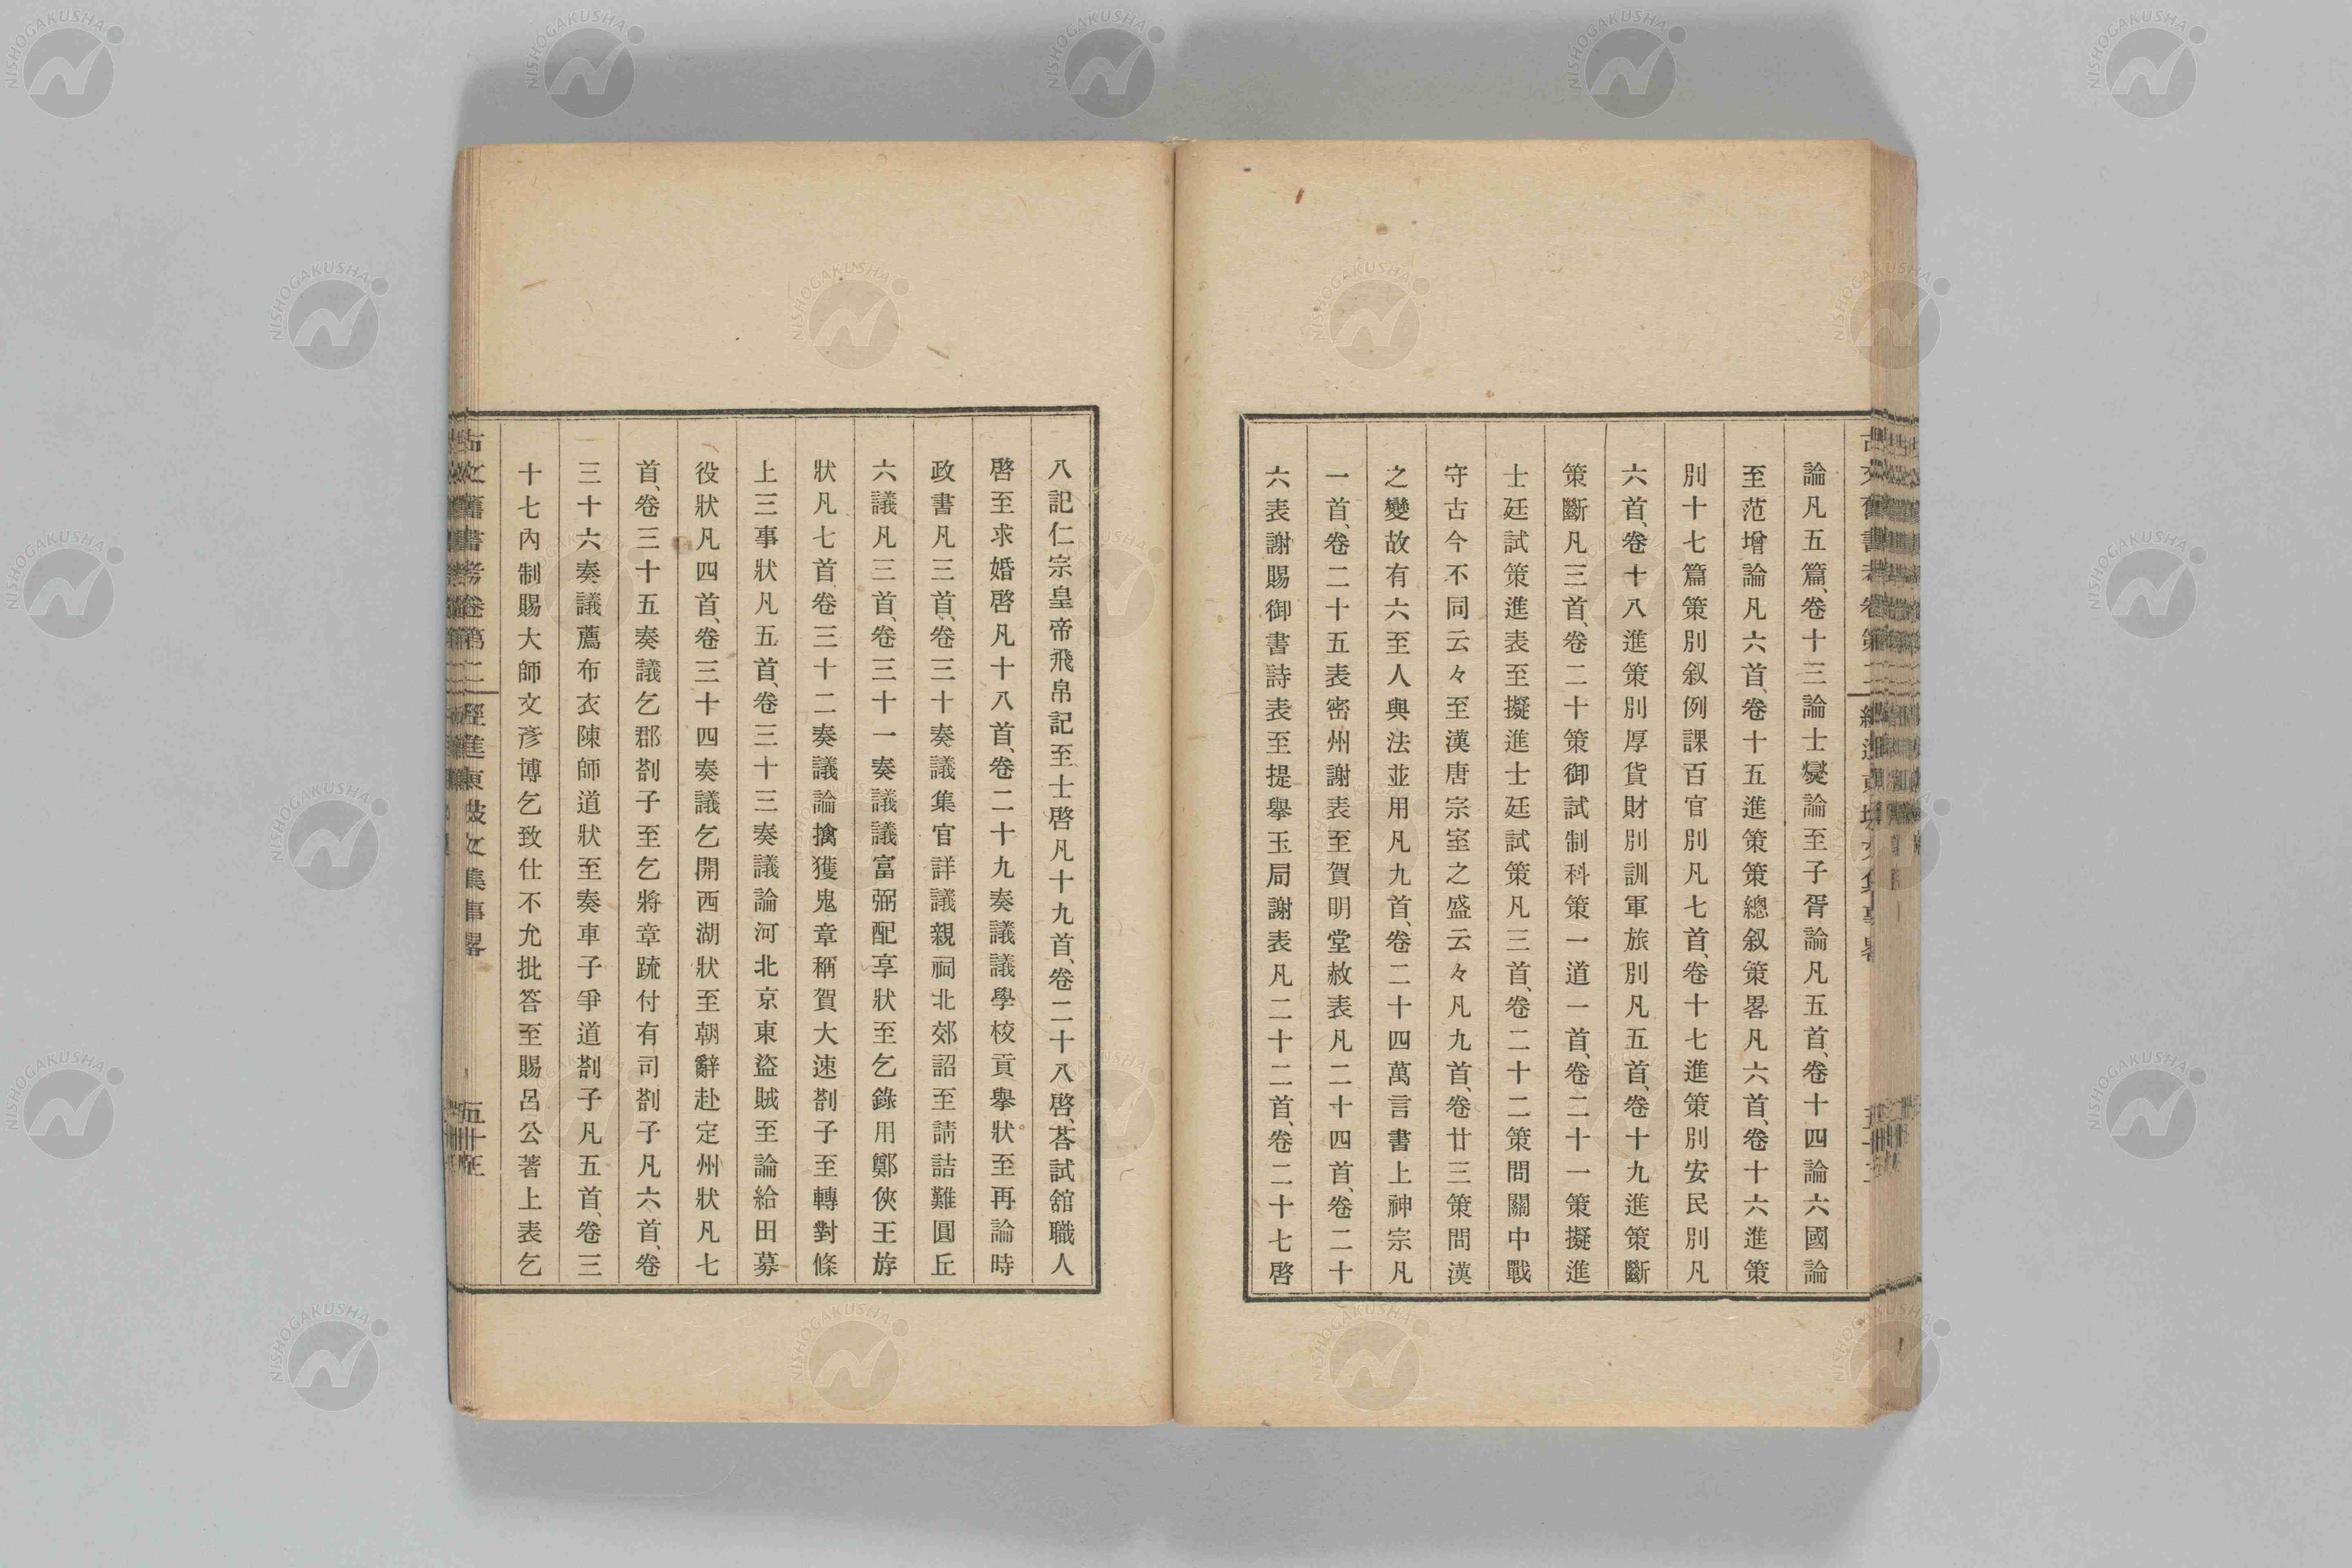 論凡五篇、卷十三論士燮論至子胥論凡五首、卷十四論六國論
至范增論凡六首、卷十五進策策總叙策畧凡六首、卷十六進策
別十七篇策別叙例課百官別凡七首、卷十七進策別安民別凡
六首、卷十八進策別厚貨財別訓軍旅別凡五首、卷十九進策斷
策斷凡三首、卷二十策御試制科策一道一首、卷二十一策擬進
士廷試策進表至擬進士廷試策凡三首、卷二十二策問關中戰
守古今不同云々至漢唐宗室之盛云々凡九首、卷廿三策問漢
之變故有六至人與法並用凡九首、卷二十四萬言書上神宗凡
一首、卷二十五表密州謝表至賀明堂赦表凡二十四首、卷二十
六表謝賜御書詩表至提擧玉局謝表凡二十二首、卷二十七啓
八記仁宗皇帝飛帛記至士啓凡十九首、卷二十八啓、荅試舘職人
啓至求婚啓凡十八首、卷二十九奏議議學校貢擧狀至再論時
政書凡三首、卷三十奏議集官詳議親祠北郊詔至請詰難圓丘
六議凡三首、卷三十一奏議議富弼配享狀至乞錄用鄭俠王斿
狀凡七首、卷三十二奏議論擒獲鬼章稱賀大速劄子至轉對條
上三事狀凡五首、卷三十三奏議論河北京東盜賊至論給田募
役狀凡四首、卷三十四奏議乞開西湖狀至朝辭赴定州狀凡七
首、卷三十五奏議乞郡劄子至乞將章疏付有司劄子凡六首、卷
三十六奏議薦布衣陳師道狀至奏車子爭道劄子凡五首、卷三
十七內制賜大師文彥博乞致仕不允批答至賜呂公著上表乞
古文舊書考卷第二 經進東坡文集事畧 五十三